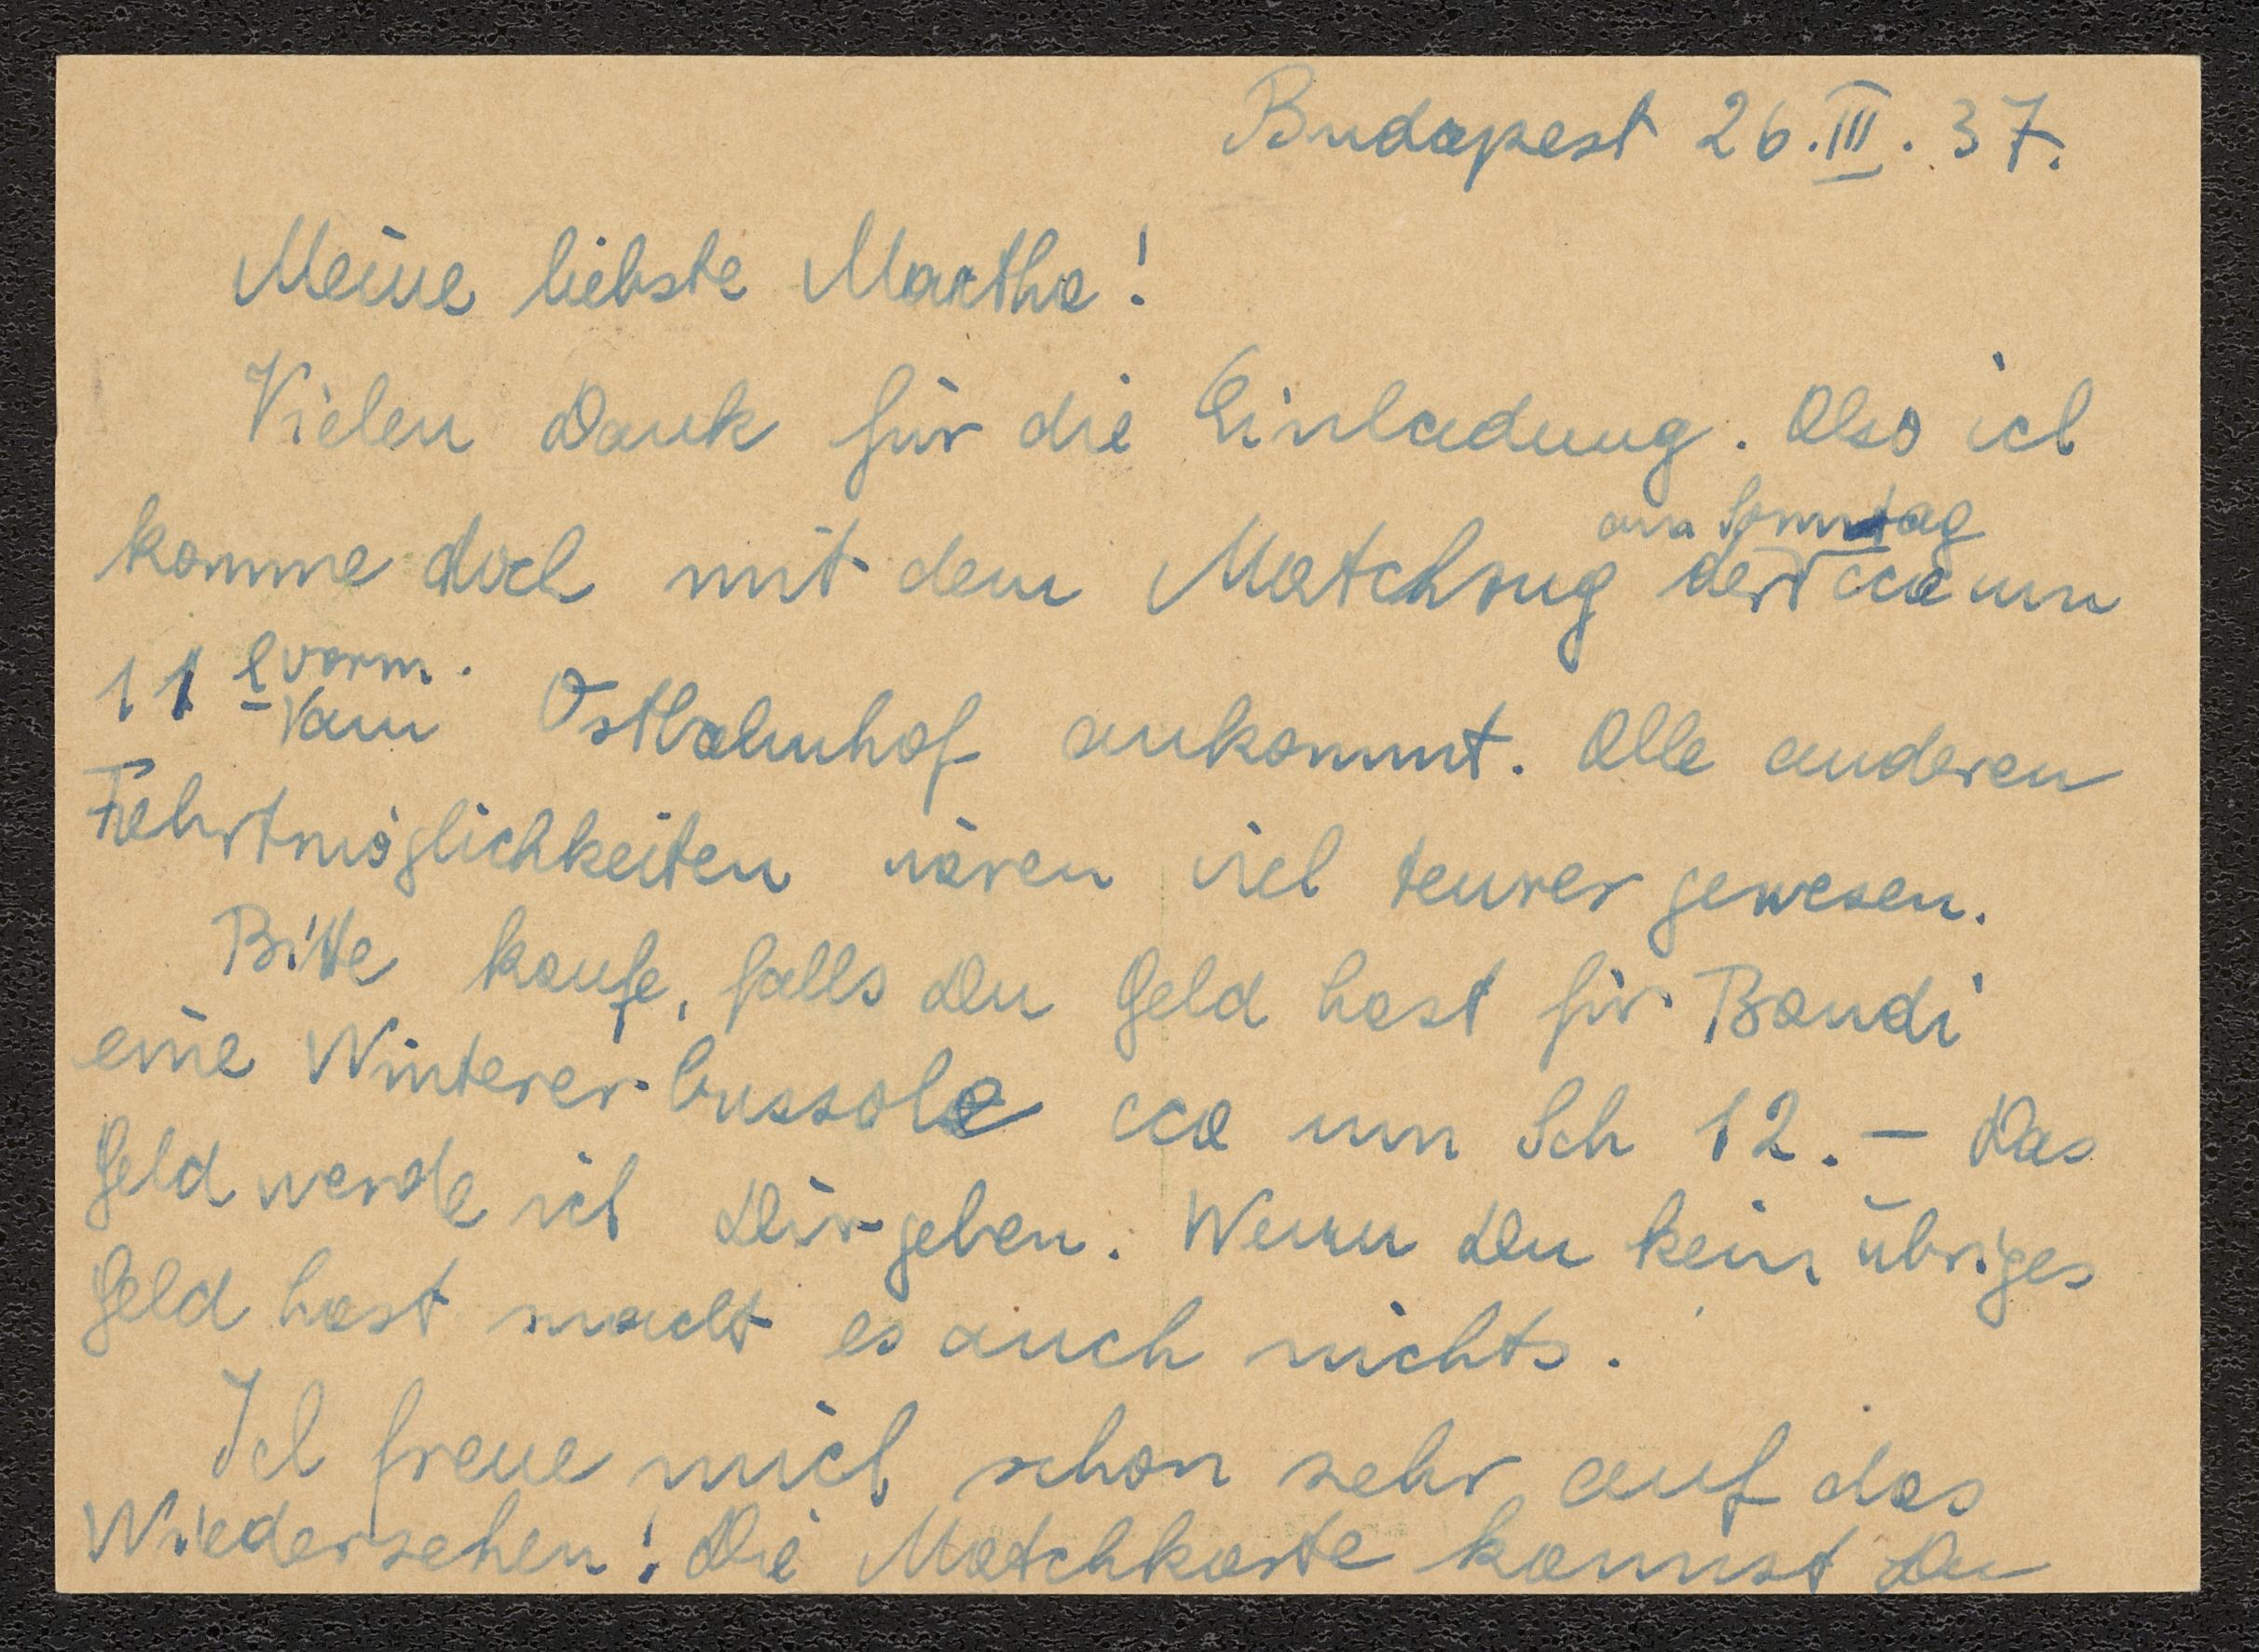 Budapest 26.III.37.
Meine liebste Martha!
Vielen Dank für die Einladung. Also ich
am Sonntag
komme doch mit dem Matchzug der cca um
11 h vorm.
am Ostbahnhof ankommt. Alle anderen
Fahrtmöglichkeiten wären viel teurer gewesen.
Bitte kaufe, falls Du Geld hast für Bandi
eine Winterer-bussole cca um Sch 12.– Das
Geld werde ich Dir geben. Wenn Du kein übriges
Geld hast macht es auch nichts.
Ich freue mich schon sehr auf das
Wiedersehen! Die Matchkarte kannst Du